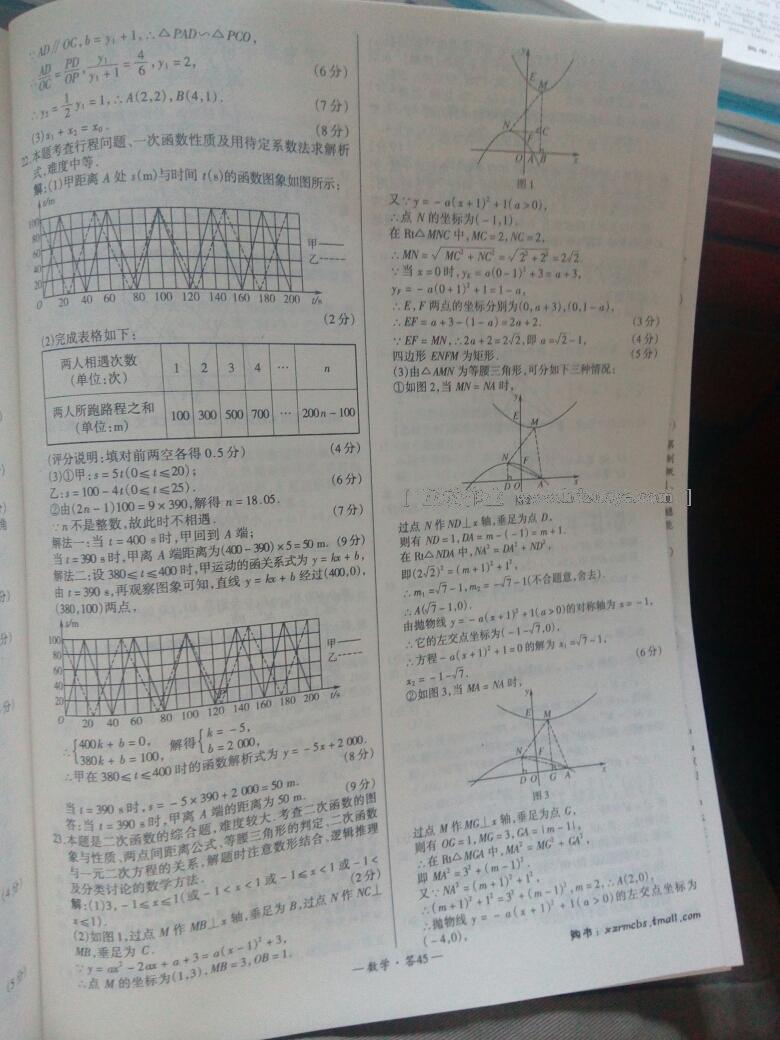 ∵AD∥OC,b=y₁+1,∴△PAD∽△PCO,
∴AD/OC=PD/OP,y₁/(y₁+1)=4/6,y₁=2, (6分)
∴y₂=1/2y₁=1,∴A(2,2),B(4,1). (7分)
(3)x₁+x₂=x₀. (8分)
22.本题考查行程问题、一次函数性质及用待定系数法求解析
式,难度中等.
解:(1)甲距离 A 处 s(m)与时间 t(s)的函数图象如图所示:
s/m
100
80
60
40
20
0 20 40 60 80 100 120 140 160 180 200 t/s
甲——
乙-----
(2分)
(2)完成表格如下:
两人相遇次数(单位:次) 1 2 3 4 … n
两人所跑路程之和(单位:m) 100 300 500 700 … 200n-100
(评分说明:填对前两空各得0.5分) (4分)
(3)①甲:s=5t(0≤t≤20);
乙:s=100-4t(0≤t≤25). (6分)
②由(2n-1)100=9×390,解得 n=18.05.
∵n不是整数,故此时不相遇. (7分)
解法一:当 t=400 s时,甲回到 A 端;
当t=390 s时,甲离 A 端距离为(400-390)×5=50 m. (9分)
解法二:设 380≤t≤400时,甲运动的函关系式为 y=kx+b,
由 t=390 s,再观察图象可知,直线 y=kx+b 经过(400,0),
(380,100)两点,
s/m
100
80
60
40
20
0 20 40 60 80 100 120 140 160 180 200 t/s
甲——
乙-----
∴{400k+b=0, 380k+b=100, 解得{k=-5, b=2 000,
∴甲在380≤t≤400时的函数解析式为 y=-5x+2 000.
(8分)
当t=390 s时,s=-5×390+2 000=50 m.
答:当 t=390 s时,甲离 A 端的距离为50 m. (9分)
23.本题是二次函数的综合题,难度较大.考查二次函数的图
象与性质、两点间距离公式、等腰三角形的判定、二次函数
与一元二次方程的关系,解题时注意数形结合、逻辑推理
及分类讨论的数学方法.
解:(1)3,-1≤x≤1(或-1<x<1或-1≤x<1或-1<
x≤1). (2分)
(2)如图1,过点 M 作 MB⊥x 轴,垂足为 B,过点 N 作 NC⊥
MB,垂足为 C.
∵y=ax²-2ax+a+3=a(x-1)²+3,
∴点 M 的坐标为(1,3),MB=3,OB=1.
y
E
M
N
F
C
O A B x
图1
又∵y=-a(x+1)²+1(a>0),
∴点 N 的坐标为(-1,1).
在 Rt△MNC 中,MC=2,NC=2,
∴MN=√(MC²+NC²)=√(2²+2²)=2√2.
∵当 x=0时,yE=a(0-1)²+3=a+3,
yF=-a(0+1)²+1=1-a,
∴E,F 两点的坐标分别为(0,a+3),(0,1-a),
∴EF=a+3-(1-a)=2a+2. (3分)
∵EF=MN,∴2a+2=2√2,即 a=√2-1, (4分)
四边形 ENFM 为矩形. (5分)
(3)由△AMN 为等腰三角形,可分如下三种情况:
①如图2,当 MN=NA时,
y
E
M
N
F
D O A x
过点 N 作 ND⊥x 轴,垂足为点 D,
则有 ND=1,DA=m-(-1)=m+1.
在 Rt△NDA 中,NA²=DA²+ND²,
即(2√2)²=(m+1)²+1²,
∴m₁=√7-1,m₂=-√7-1(不合题意,舍去).
∴A(√7-1,0).
由抛物线 y=-a(x+1)²+1(a>0)的对称轴为 x=-1,
∴它的左交点坐标为(-1-√7,0).
∴方程-a(x+1)²+1=0的解为 x₁=√7-1,
x₂=-1-√7. (6分)
②如图3,当 MA=NA时,
y
E
M
N
F
D O G A x
图3
过点 M 作 MG⊥x 轴,垂足为点 G,
则有 OG=1,MG=3,GA=|m-1|,
∴在 Rt△MGA 中,MA²=MG²+GA²,
即 MA²=3²+(m-1)²,
又∵NA²=(m+1)²+1²,
∴(m+1)²+1²=3²+(m-1)²,m=2,∴A(2,0),
∴抛物线 y=-a(x+1)²+1(a>0)的左交点坐标为
(-4,0),
购书:xzrmcbs.tmall.com
—数学·答45—
(4分)
(5分)